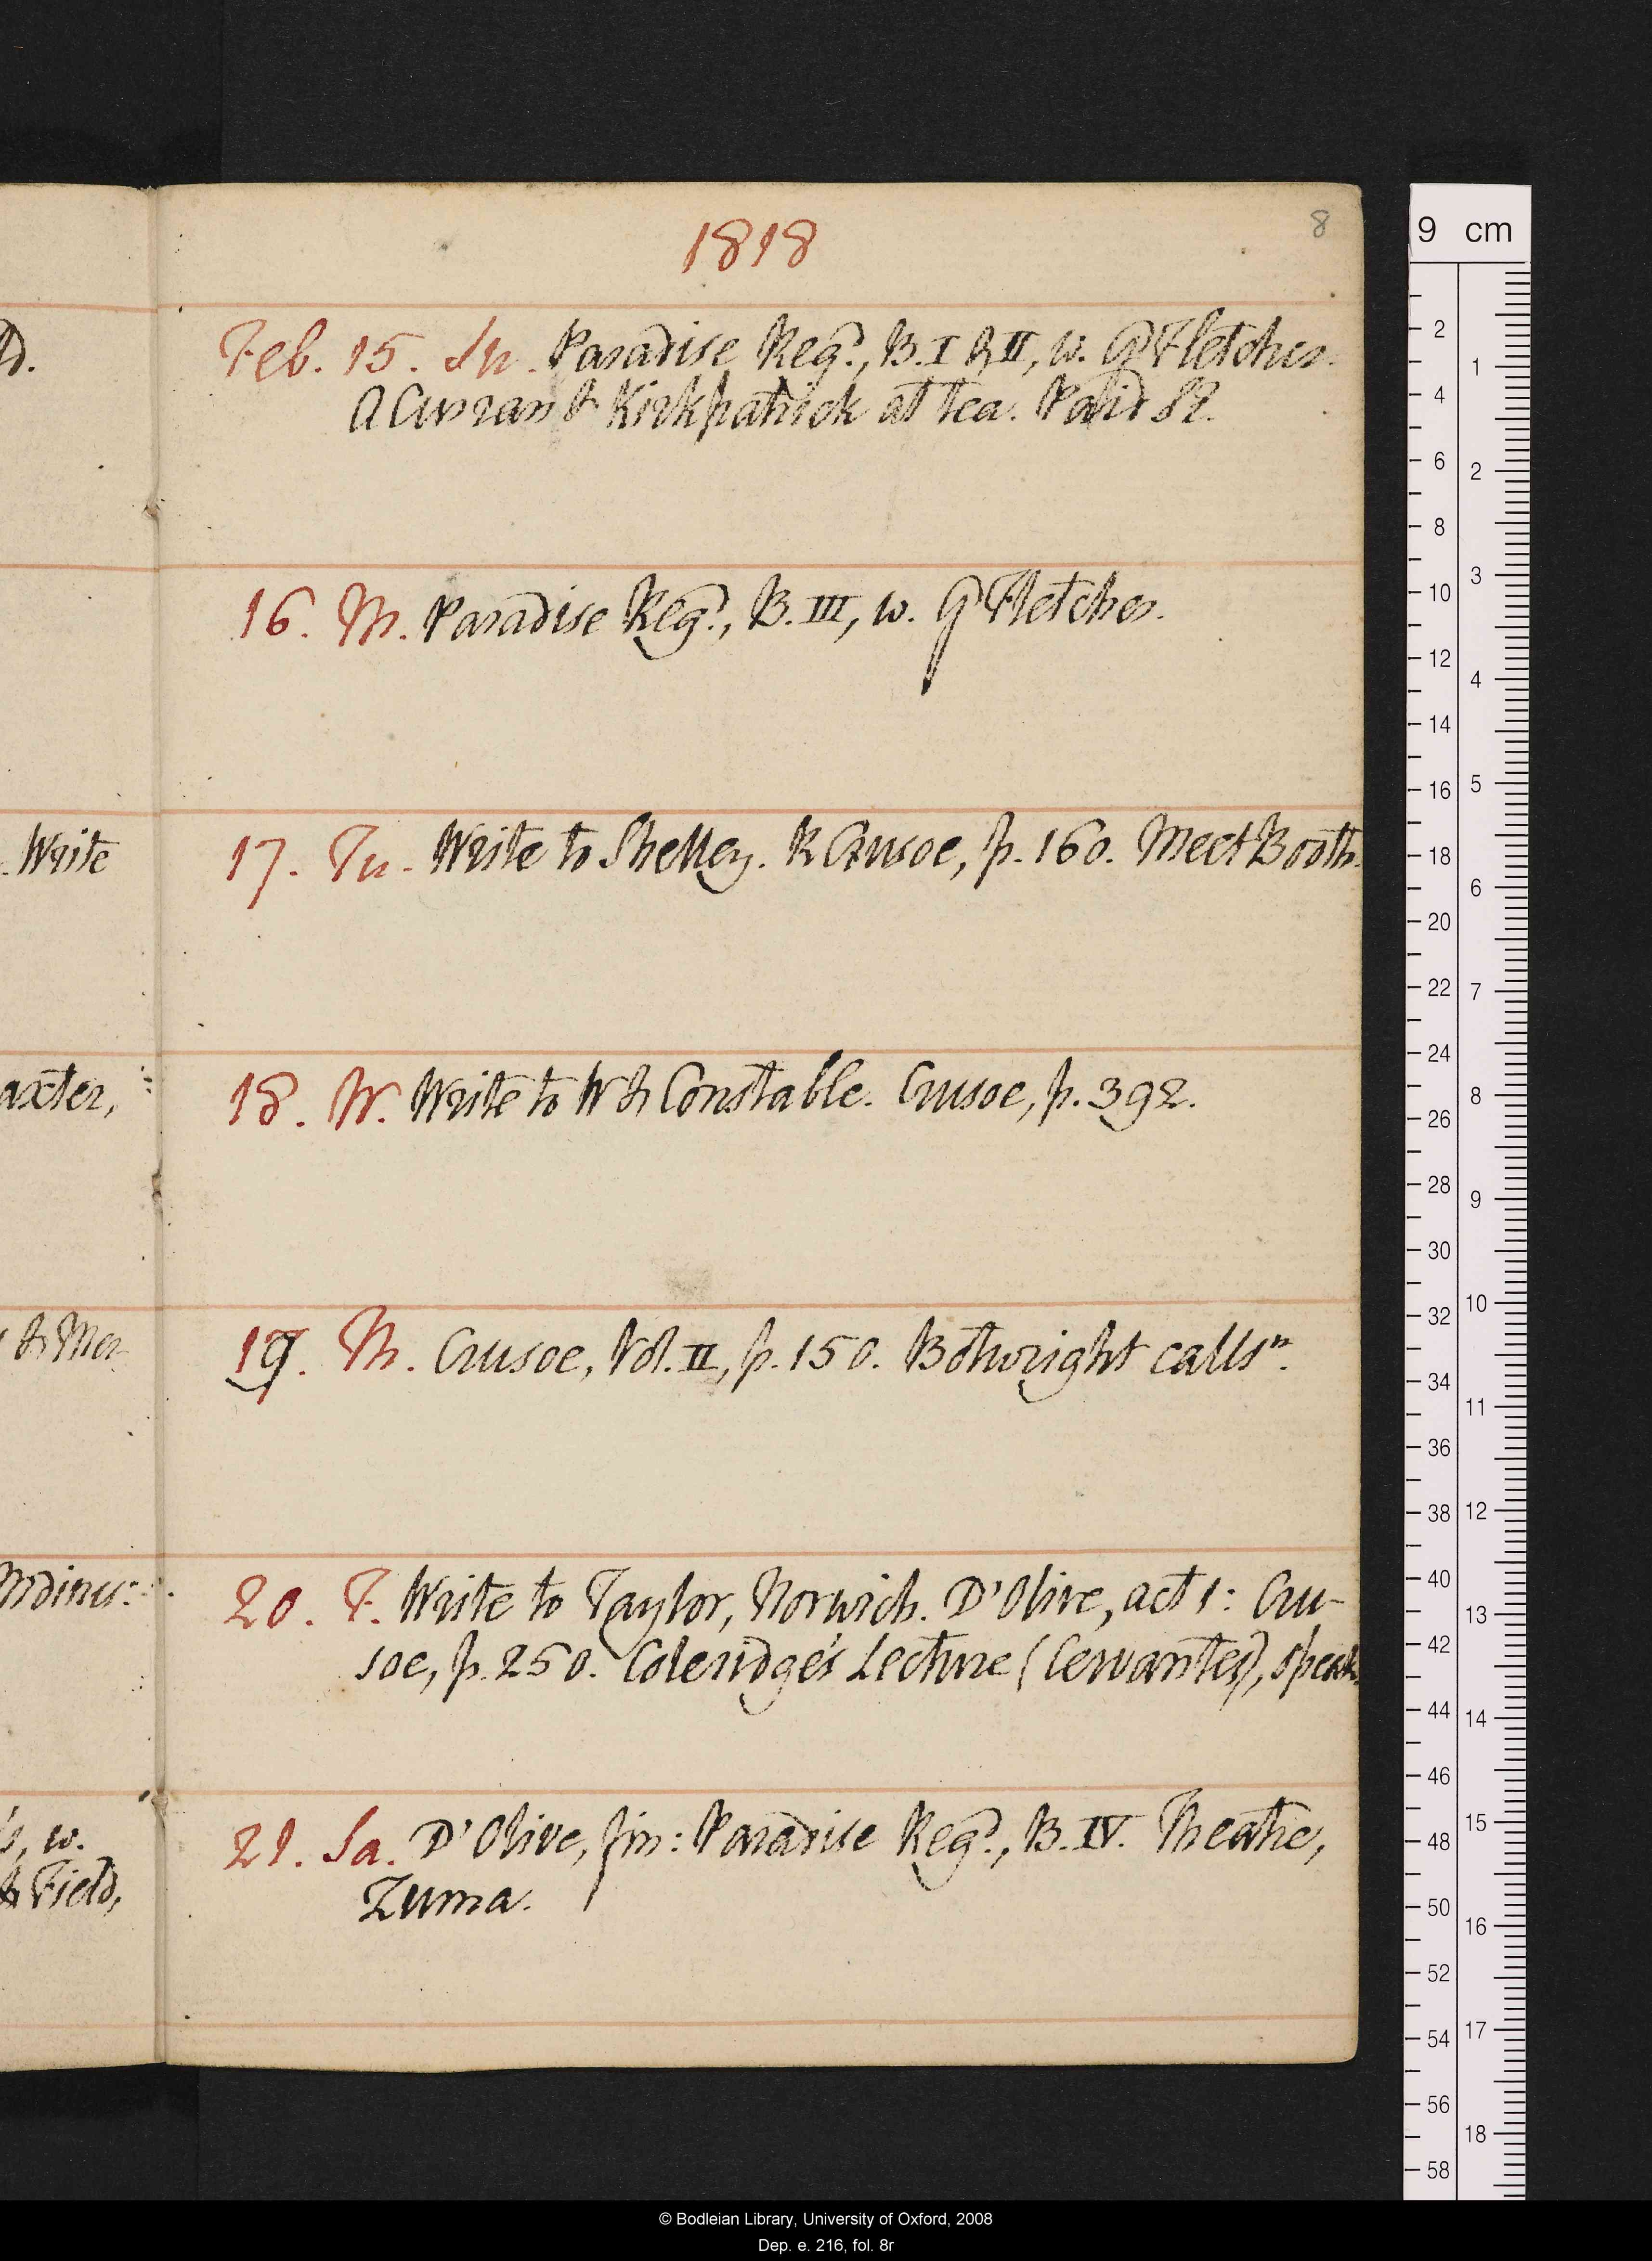 1818
8
Feb. 15. Su. Paradise Reg.d, B. I & II, w. G Fletcher.
A Curran & Kirkpatrick at tea.
16. M. Paradise Reg.d, B. III, w. G Fletcher.
17. Tu. Write to Shelley. R Crusoe, p. 160. Meet Booth.
18. W. Write to W & Constable. Crusoe, p. 392.
19. Th. Crusoe, Vol. II, p. 150. Bothwright calls n.
20. F. Write to Taylor, Norwich. D'Olive, act 1: Cru-
soe, p. 250. Coleridge's Lecture (Cervantes), speak
21. Sa. D'Olive, fin: Paradise Reg.d, B. IV. Theatre,
Zuma.
Write
axter,
& Mrs
, w.
& Field,
9 cm
2 4 6 8 10 12 14 16 18 20 22 24 26 28 30 32 34 36 38 40 42 44 46 48 50 52 54 56 58
1 2 3 4 5 6 7 8 9 10 11 12 13 14 15 16 17 18
© Bodleian Library, University of Oxford, 2008
Dep. e. 216, fol. 8r